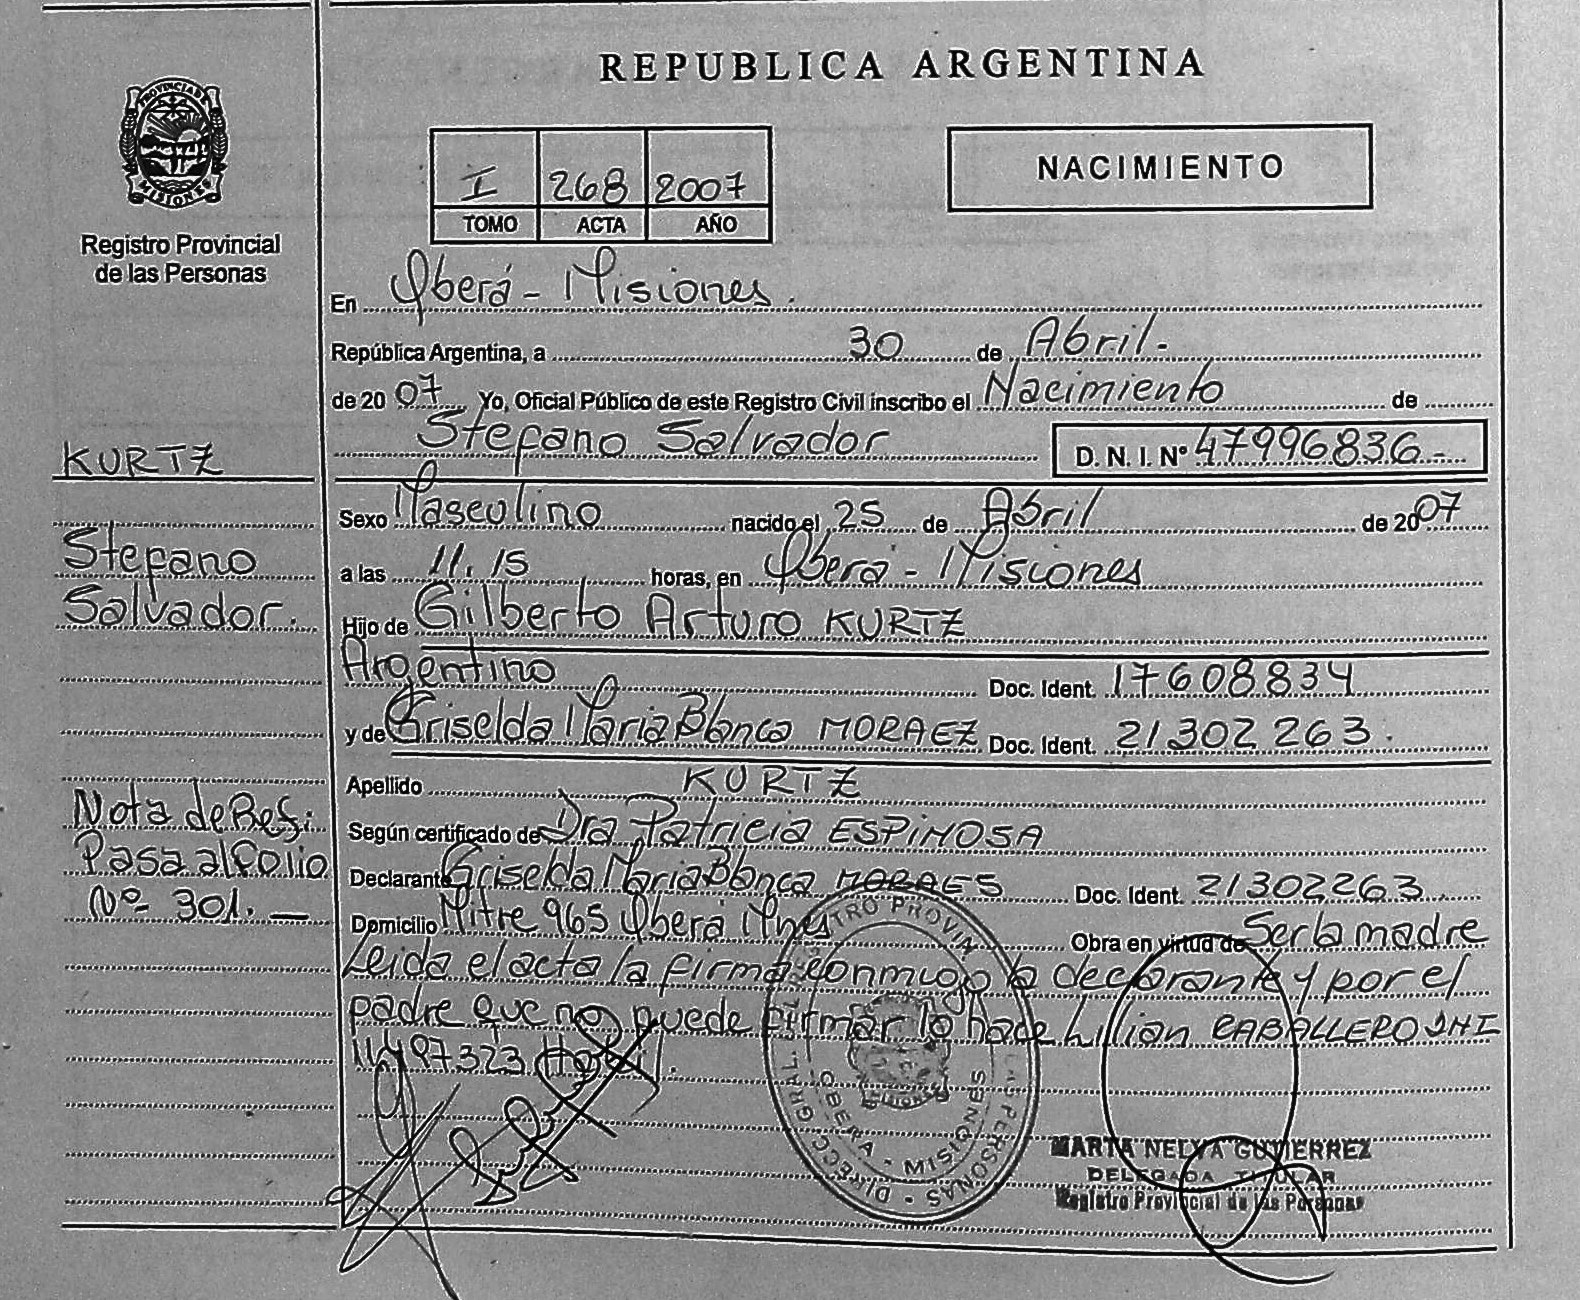 REPUBLICA ARGENTINA
PROVINCIA DE
MISIONES
Registro Provincial
de las Personas
I 268 2007
TOMO ACTA AÑO
NACIMIENTO
En Oberá - Misiones.
República Argentina, a 30 de Abril.-
de 20 07 Yo, Oficial Público de este Registro Civil inscribo el Nacimiento de
Stefano Salvador D. N. I. Nº 47996836.-
KURTZ
Stefano
Salvador.
Sexo Masculino nacido el 25 de Abril de 20 07
a las 11.15 horas, en Oberá - Misiones
Hijo de Gilberto Arturo KURTZ
Argentino Doc. Ident. 17608834
y de Griselda Maria Blanca MORAEZ Doc. Ident. 21302263.
Apellido KURTZ
Según certificado de Dra Patricia ESPINOSA
Declarante Griselda Maria Blanca MORAES Doc. Ident. 21302263
Domicilio Mitre 965 Oberá Mnes Obra en virtud de Ser la madre
Leida el acta la firma conmigo la declarante y por el
padre que no puede firmar lo hace Lilian CABALLERO DNI
Nota de Ref:
Pasa al Folio
Nº 301. —
OBERA - MISIONES
MARTA NELYA GUTIERREZ
DELEGADA TITULAR
Registro Provincial de las Personas